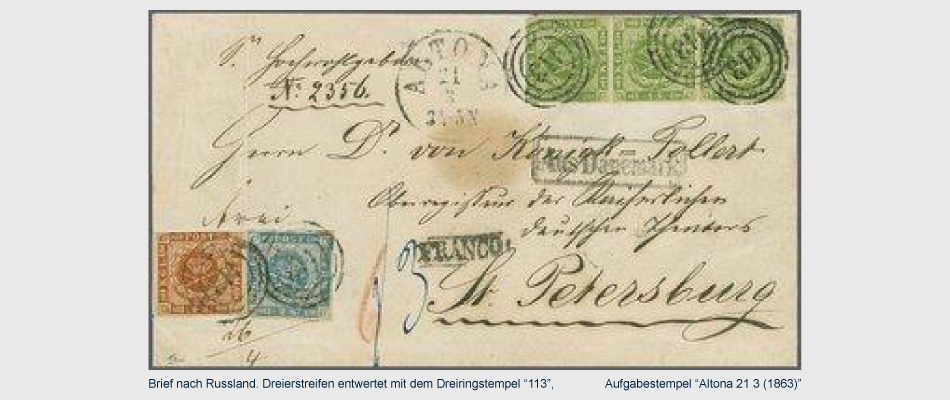 Sr Hochwohlgeboren
No. 2356.
ALTONA
21
3
113
113
Herrn Dr. von Königk=Tollert
Aus Dänemark
Oberregisseur der Kaiserlichen
deutschen Theaters
frei
FRANCO.
3
St. Petersburg
POST
POST
26
4
Brief nach Russland. Dreierstreifen entwertet mit dem Dreiringstempel “113”,
Aufgabestempel “Altona 21 3 (1863)”